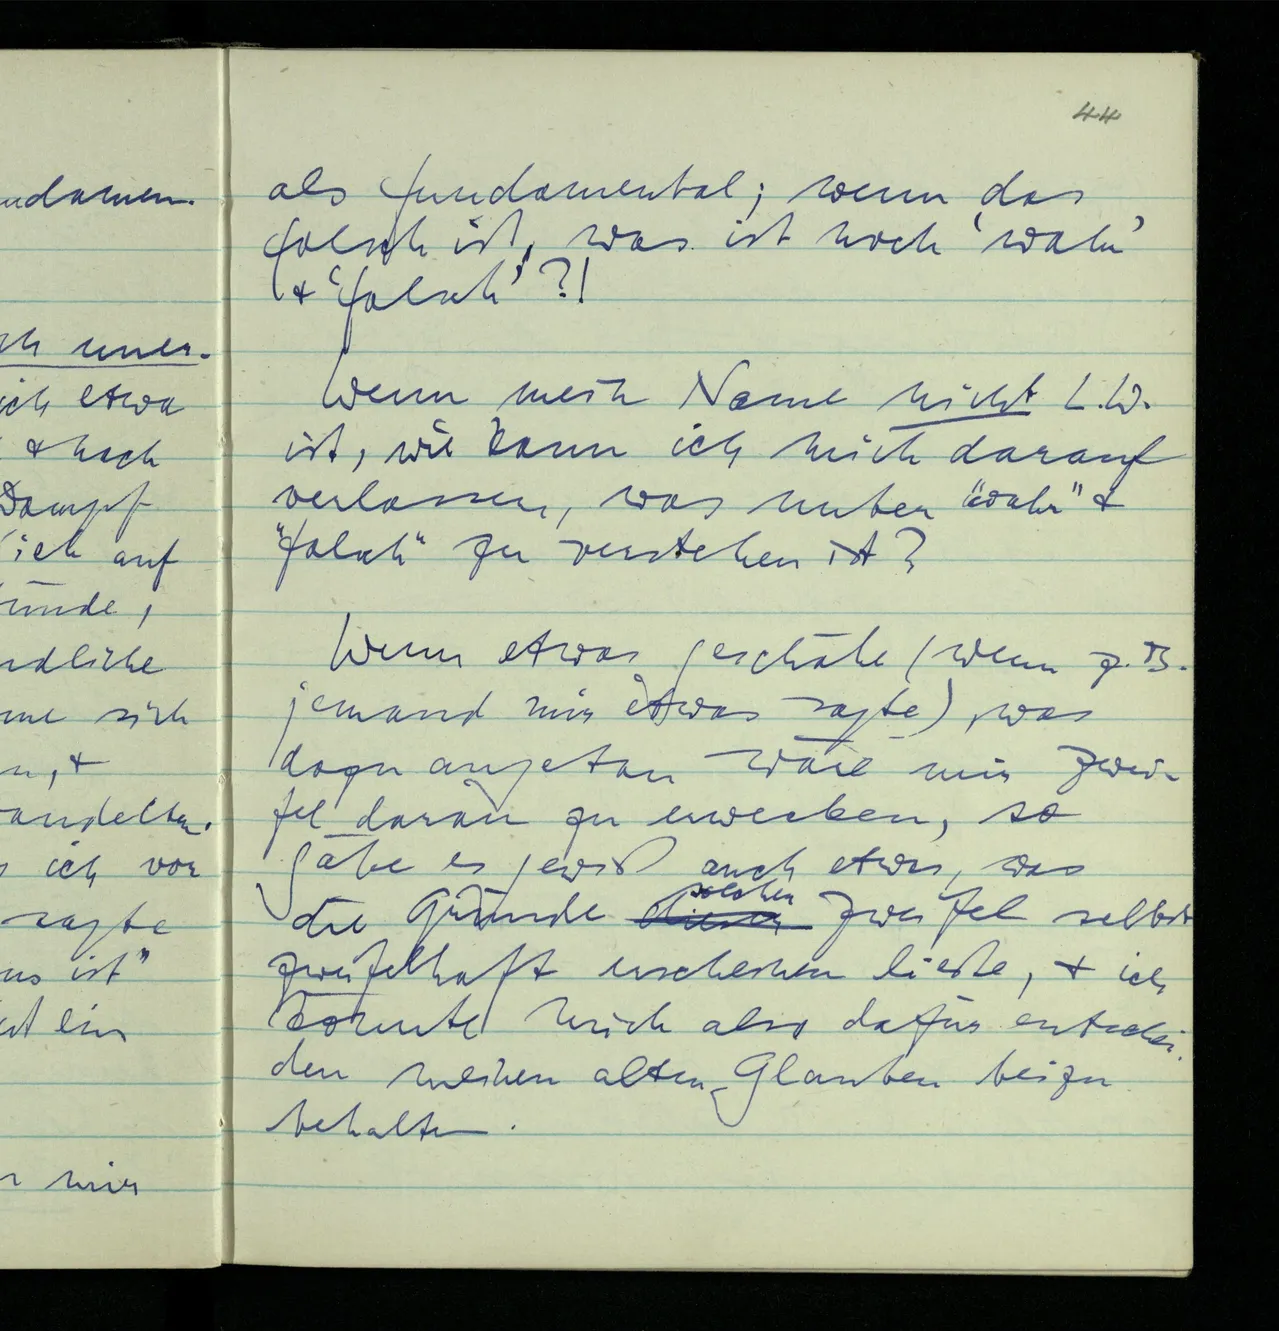 44
ndamen.
ch uner-
ich etwa
& nach
Dampf
ich auf
ründe,
ndliche
me sich
n, &
andelten.
s ich vor
sagte
us ist"
ist ein
r mir
als fundamental; wenn das
falsch ist, was ist noch ‘wahr’
& ‘falsch’?!
Wenn mein Name nicht L.W.
ist, wie kann ich mich darauf
verlassen, was unter "wahr" &
"falsch" zu verstehen ist?
Wenn etwas geschähe (wenn z.B.
jemand mir etwas sagte), was
dazu angetan wäre mir Zwei-
fel daran zu erwecken, so
gäbe es gewiß auch etwas, was
die Gründe dieser solcher Zweifel selbst
zweifelhaft erscheinen ließe, & ich
könnte mich also dafür entschei-
den meinen alten Glauben beizu
behalten.